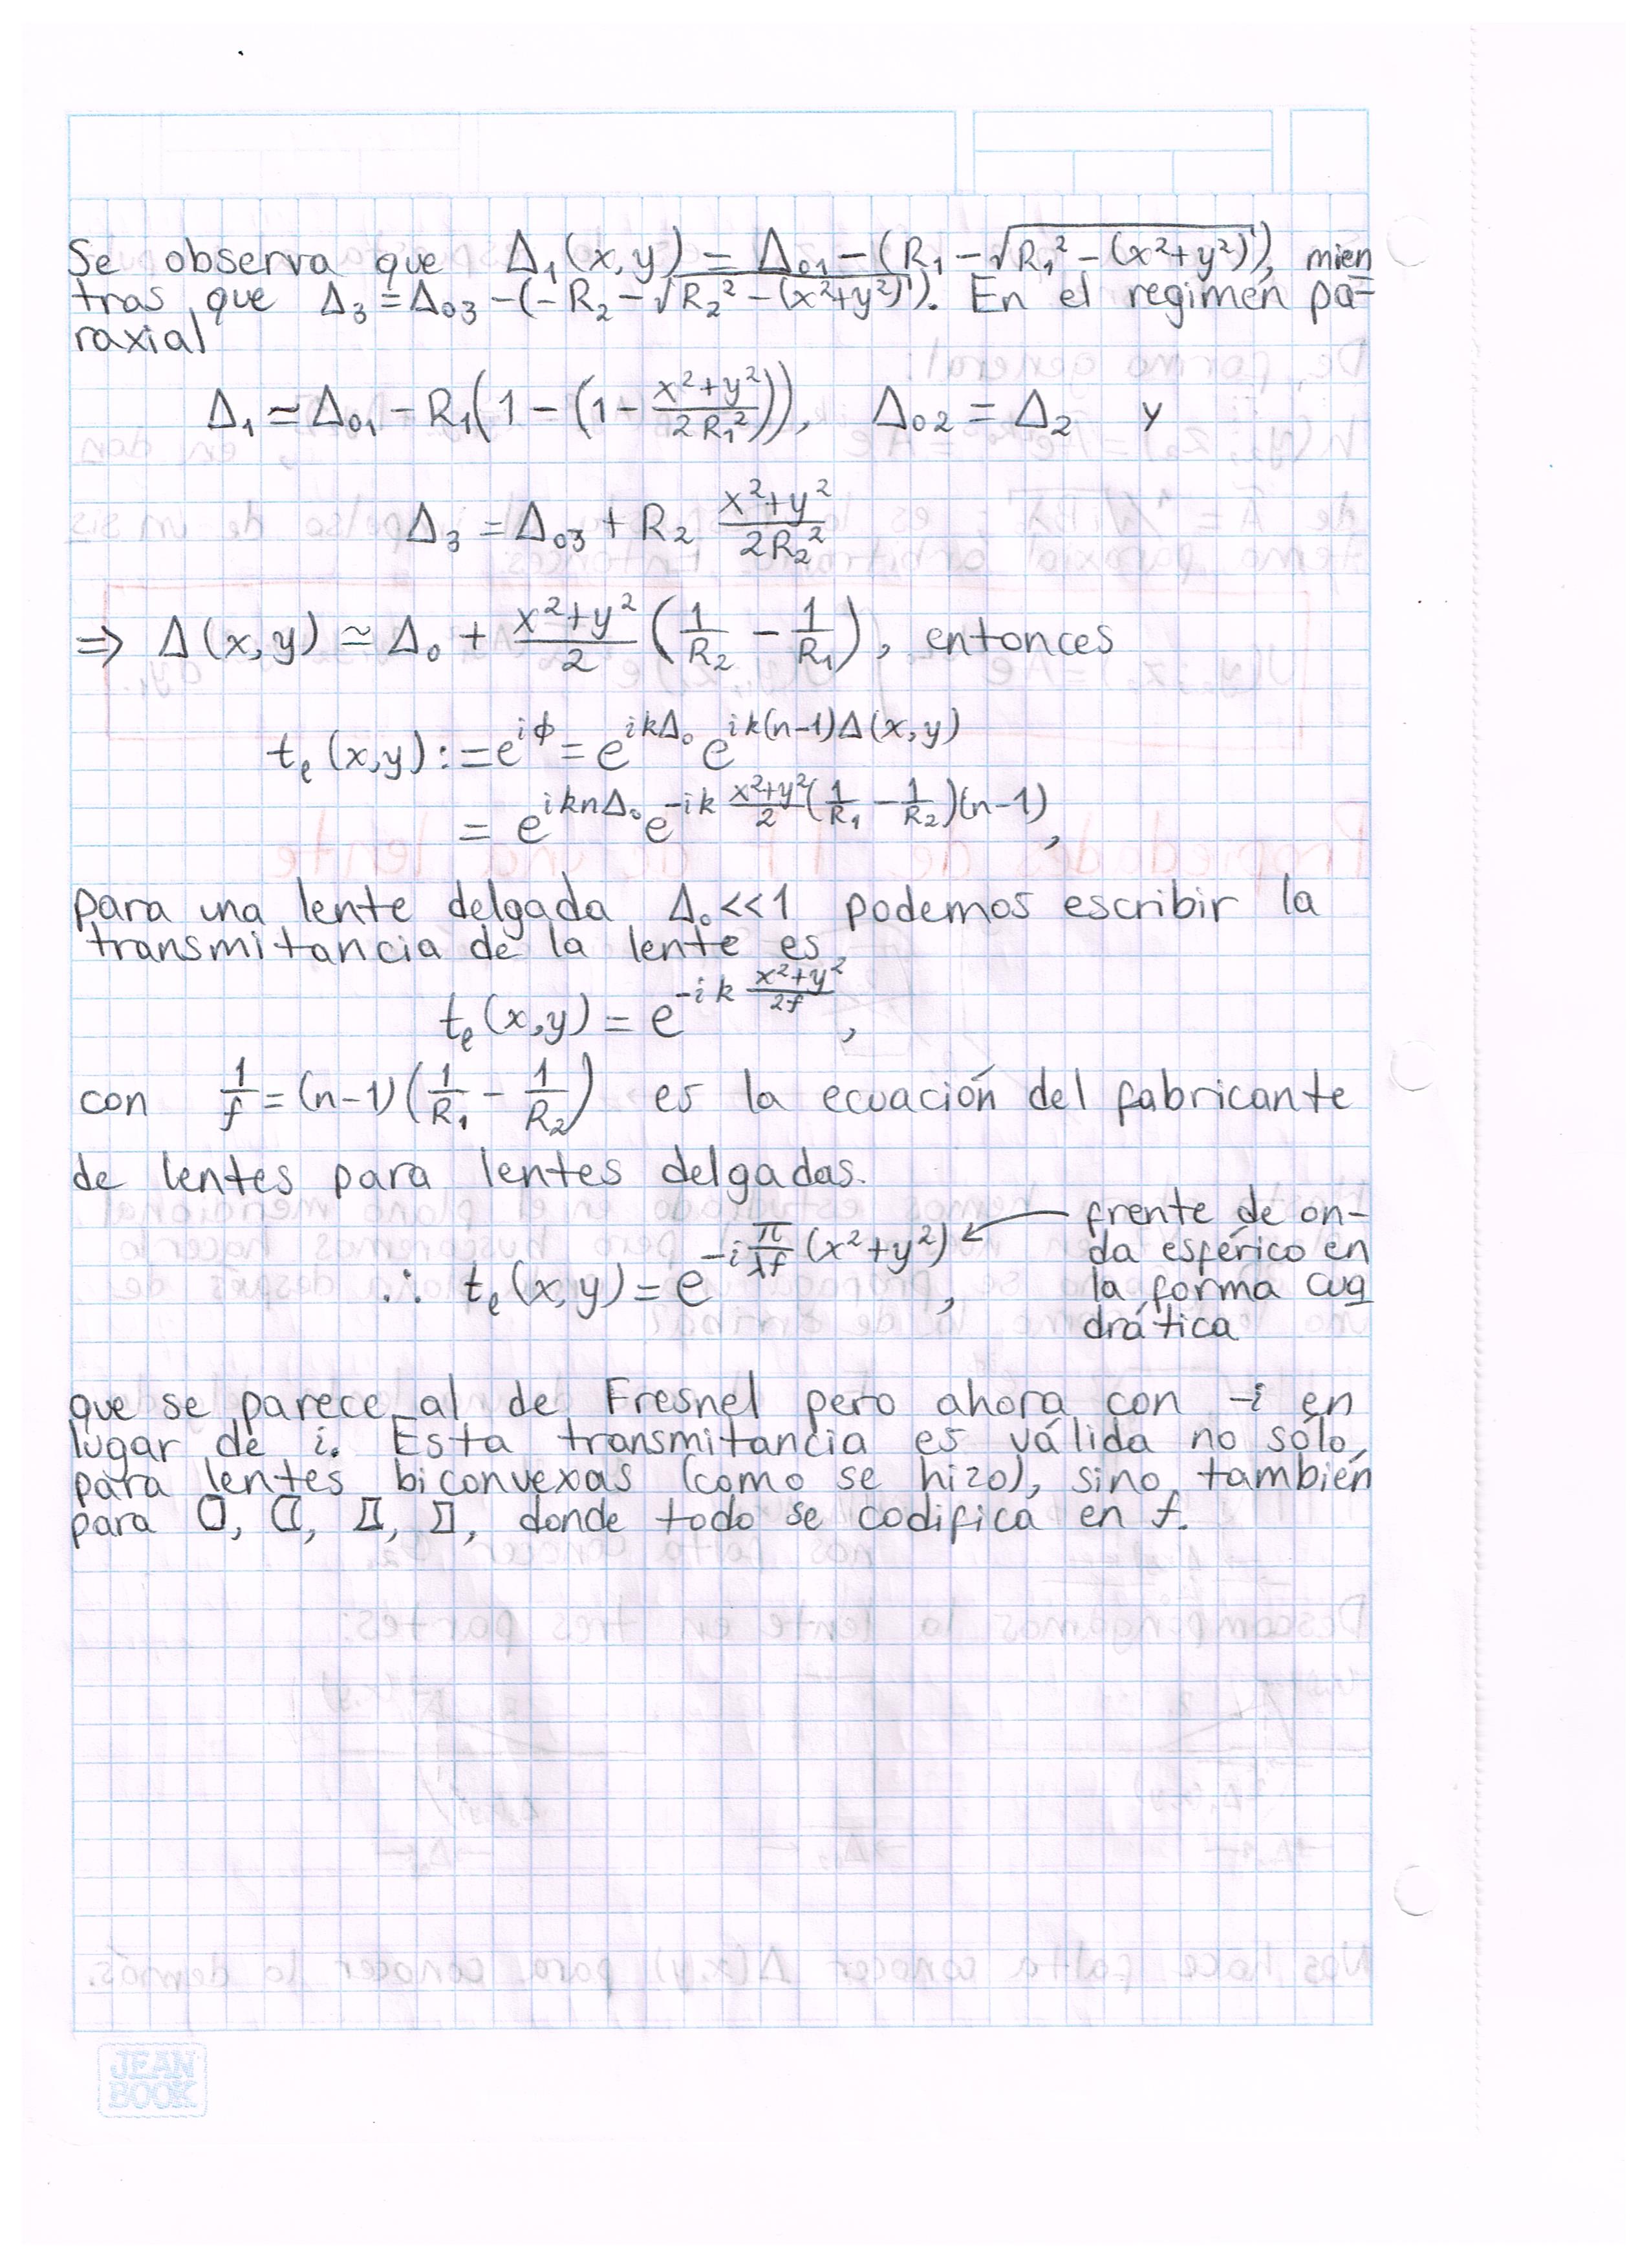 Se observa que Δ₁(x,y) = Δ₀₁ − (R₁ − √(R₁² − (x²+y²))), mien
tras que Δ₃ = Δ₀₃ − (−R₂ − √(R₂² − (x²+y²))). En el regimen pa-
raxial
Δ₁ ≃ Δ₀₁ − R₁(1 − (1 − (x²+y²)/(2R₁²))), Δ₀₂ = Δ₂ y
Δ₃ = Δ₀₃ + R₂ (x²+y²)/(2R₂²)
⇒ Δ(x,y) ≃ Δ₀ + (x²+y²)/2 (1/R₂ − 1/R₁), entonces
t_ℓ(x,y) := e^{iϕ} = e^{ikΔ₀} e^{ik(n−1)Δ(x,y)}
= e^{iknΔ₀} e^{−ik (x²+y²)/2 (1/R₁ − 1/R₂)(n−1)},
para una lente delgada Δ₀ << 1 podemos escribir la
transmitancia de la lente es
t_ℓ(x,y) = e^{−ik (x²+y²)/(2f)},
con 1/f = (n−1)(1/R₁ − 1/R₂) es la ecuación del fabricante
de lentes para lentes delgadas.
∴ t_ℓ(x,y) = e^{−i π/(λf) (x²+y²)},
frente de on-
da esférico en
la forma cua
drática
que se parece al de Fresnel pero ahora con −i en
lugar de i. Esta transmitancia es válida no sólo
para lentes biconvexas (como se hizo), sino también
para , , , , donde todo se codifica en f.
JEAN
BOOK